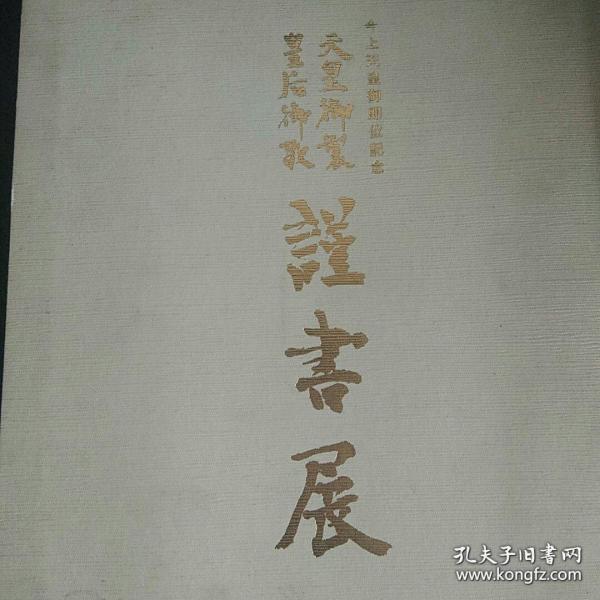 今上天皇御即位記念
天皇御製
皇后御歌
謹書展
孔夫子旧书网
www.kongfz.com